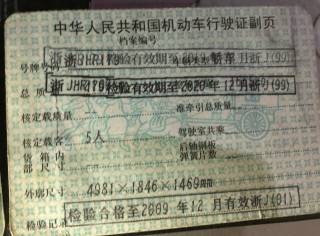 中华人民共和国机动车行驶证副页
档案编号
号牌号 浙JHR 检验有效期至 月浙J(99)
总质 浙JHR 检验有效期至2020年12月浙J(99)
核定载质量 准牵引总质量
核定载客 5人 驾驶室共乘
货箱内 后轴钢板
部尺寸 弹簧片数
外廓尺寸 4981×1846×1469
检验记录 检验合格至2009年12月有效浙J(01)